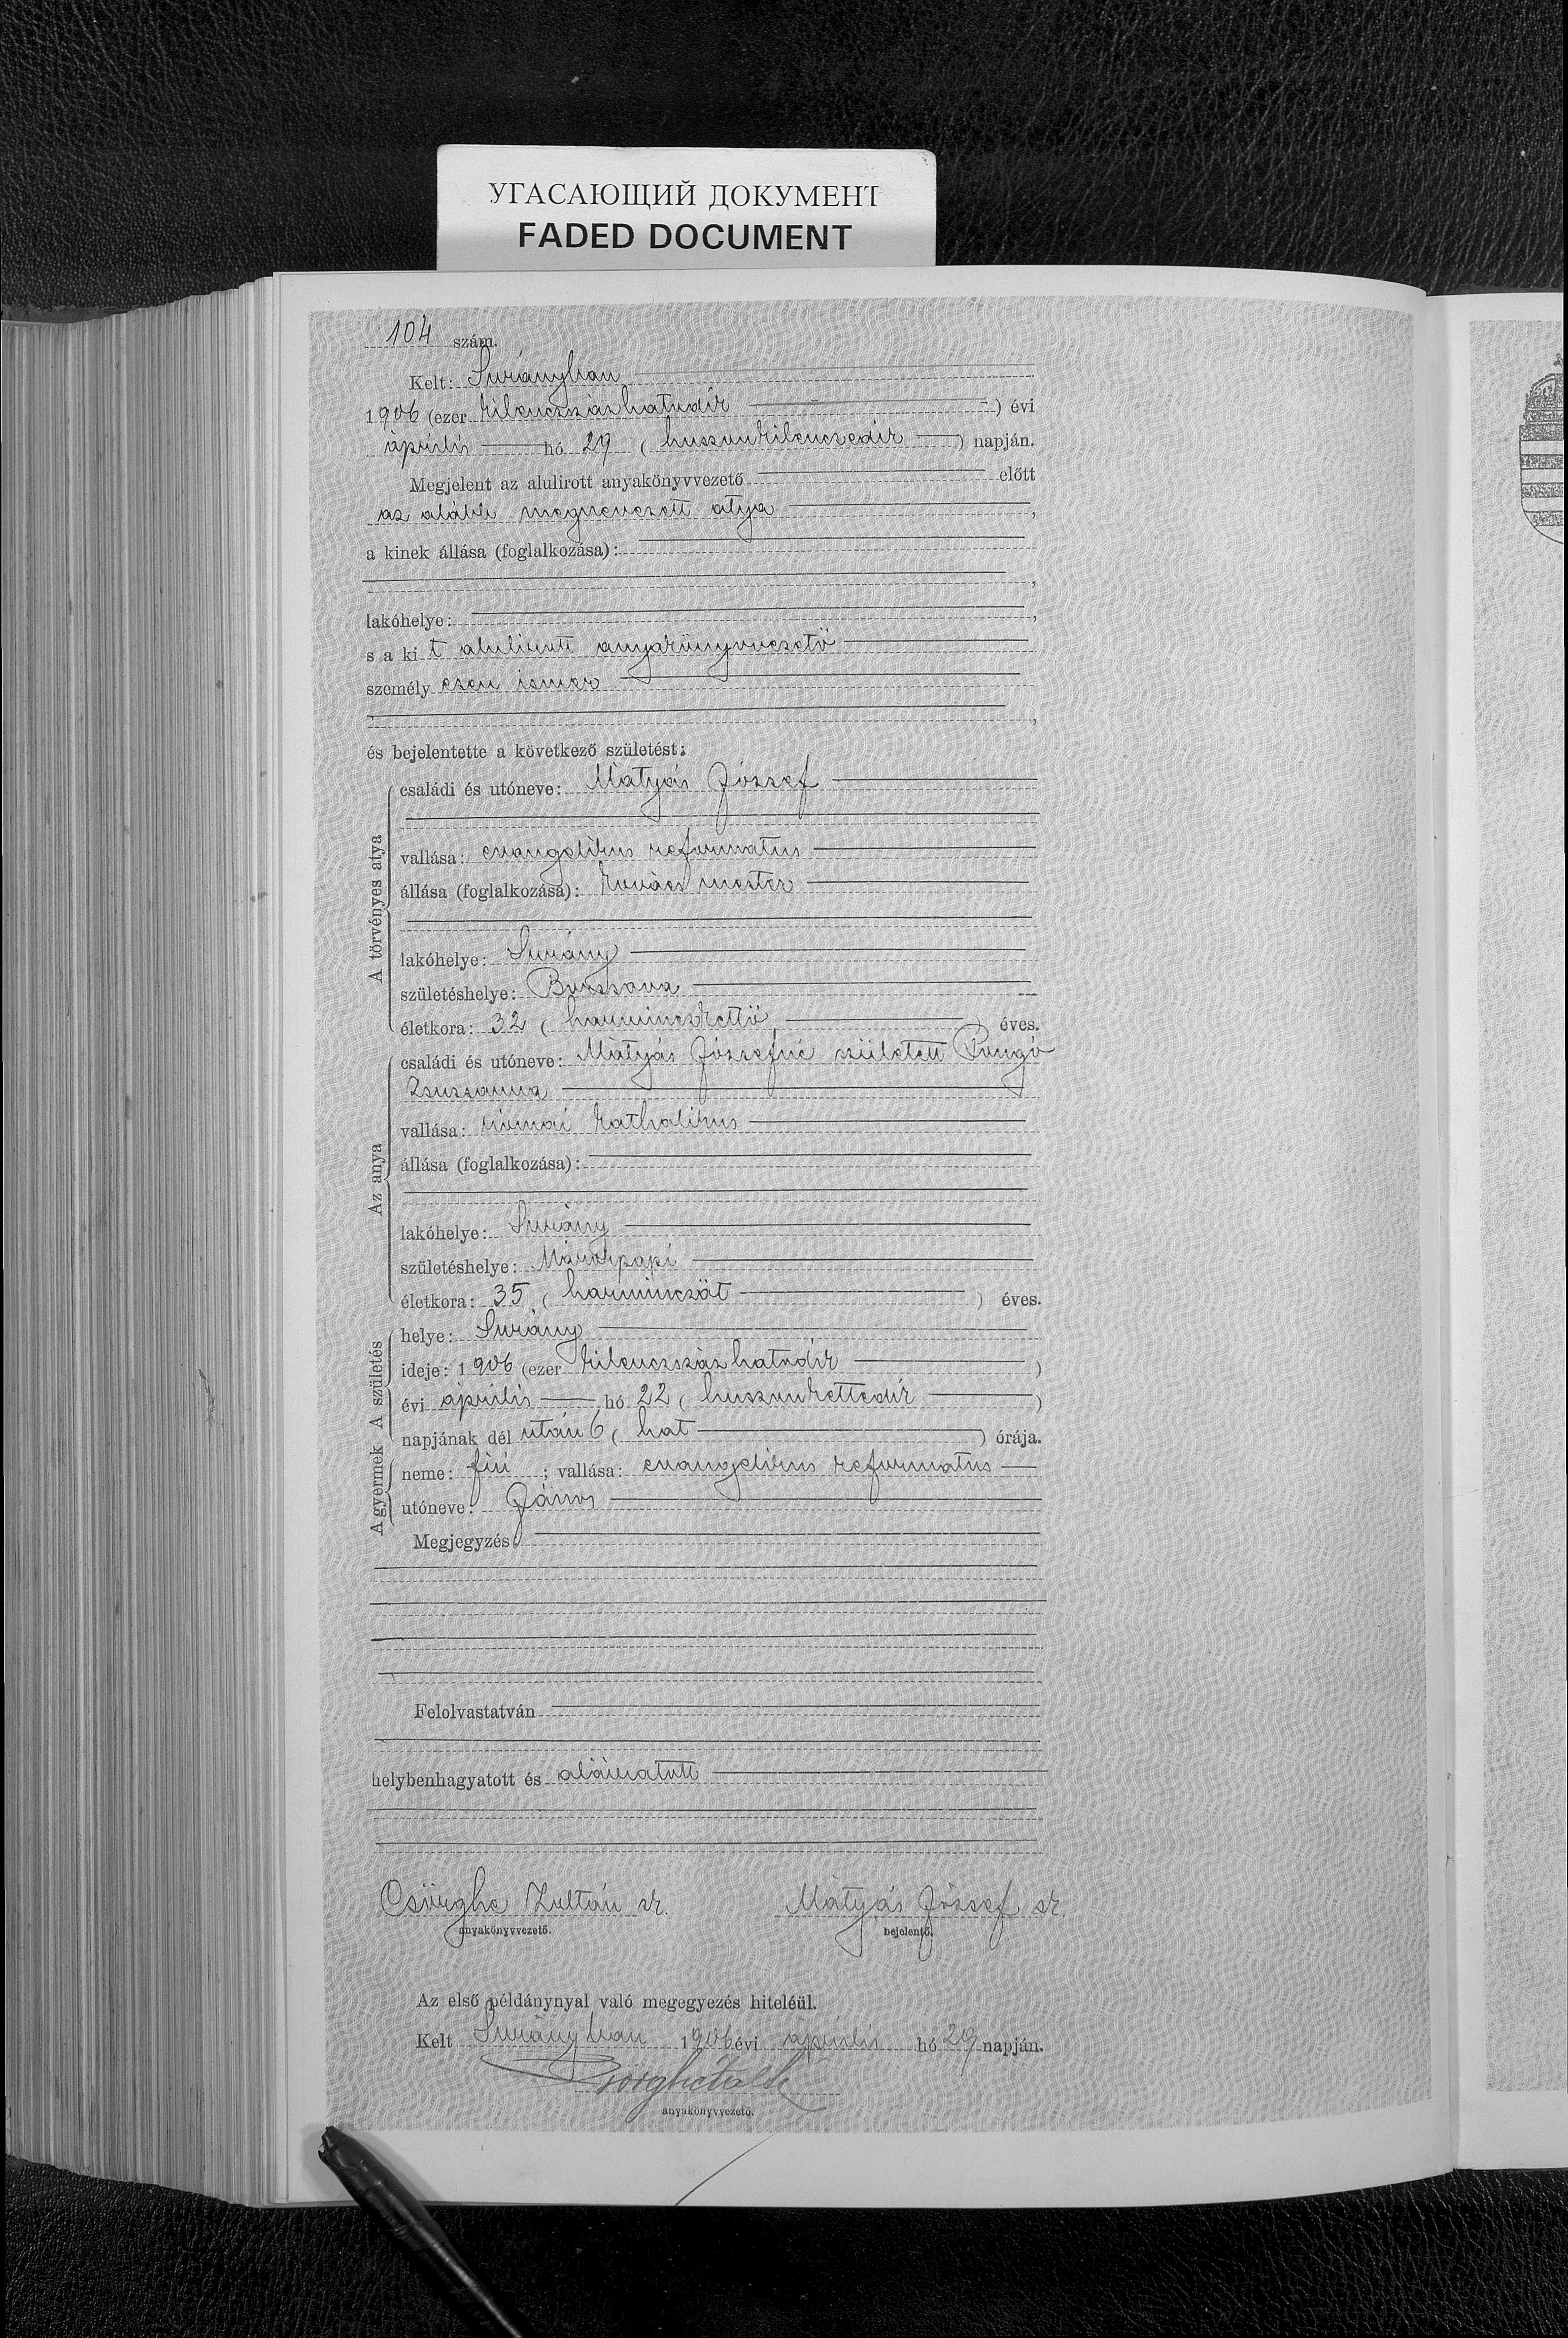 УГАСАЮЩИЙ ДОКУМЕНТ
FADED DOCUMENT
104 szám.
Kelt: Surányban
1906 (ezer kilenczszázhatodik ) évi
április hó 29 ( huszonkilenczedik ) napján.
Megjelent az alulirott anyakönyvvezető előtt
az alább megnevezett atya ,
a kinek állása (foglalkozása):
,
lakóhelye: ,
s a ki t alulirott anyakönyvvezető
személy esen ismer
,
és bejelentette a következő születést:
A törvényes atya
családi és utóneve: Mátyás József
vallása: evangelikus reformatus
állása (foglalkozása): kovács mester
lakóhelye: Surány
születéshelye: Borzsova
életkora: 32 ( harminczkettő ) éves.
Az anya
családi és utóneve: Mátyás Józsefné született Pongó
Zsuzsanna
vallása: római katholikus
állása (foglalkozása):
lakóhelye: Surány
születéshelye: Márokpapi
életkora: 35 ( harminczöt ) éves.
A születés
helye: Surány
ideje: 1906 (ezer kilenczszázhatodik )
évi április hó 22 ( huszonkettedik )
napjának dél után 6 ( hat ) órája.
A gyermek
neme: fiú ; vallása: evangelikus reformatus
utóneve: János
Megjegyzés:
Felolvastatván
helybenhagyatott és aláiratott
Csörghe Zoltán sk. Mátyás József sk.
anyakönyvvezető. bejelentő.
Az első példánynyal való megegyezés hiteléül.
Kelt Surányban 1906 évi április hó 29 napján.
anyakönyvvezető.